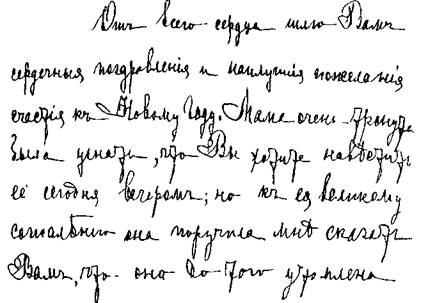 Отъ всего сердца шлю Вамъ
сердечныя поздравленія и наилучшія пожеланія
счастія къ Новому Году. Мама очень тронута
была узнать, что Вы хотите навѣстить
её сегодня вечеромъ; но къ ея великому
сожалѣнію она поручила мнѣ сказать
Вамъ, что она до того утомлена